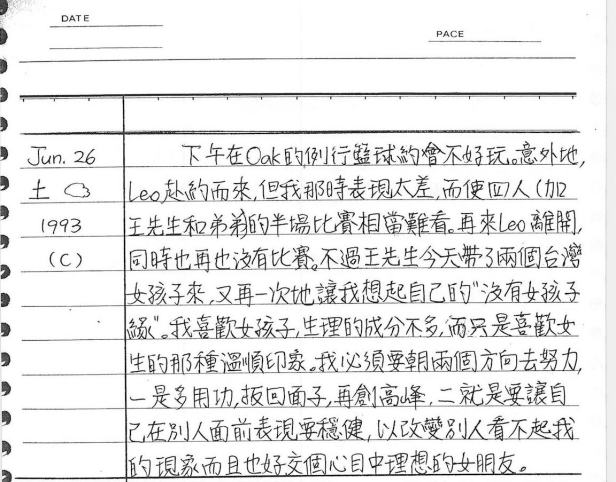 DATE
PACE
Jun. 26
土
1993
(C)
下午在Oak的例行籃球約會不好玩。意外地,
Leo赴約而來,但我那時表現太差,而使四人(加
王先生和弟弟)的半場比賽相當難看。再來Leo離開,
同時也再也沒有比賽。不過王先生今天帶了兩個台灣
女孩子來,又再一次地讓我想起自己的"沒有女孩子
緣"。我喜歡女孩子,生理的成分不多,而只是喜歡女
生的那種溫順印象。我必須要朝兩個方向去努力,
一是多用功,扳回面子,再創高峰,二就是要讓自
己在別人面前表現要穩健,以改變別人看不起我
的現象而且也好交個心目中理想的女朋友。